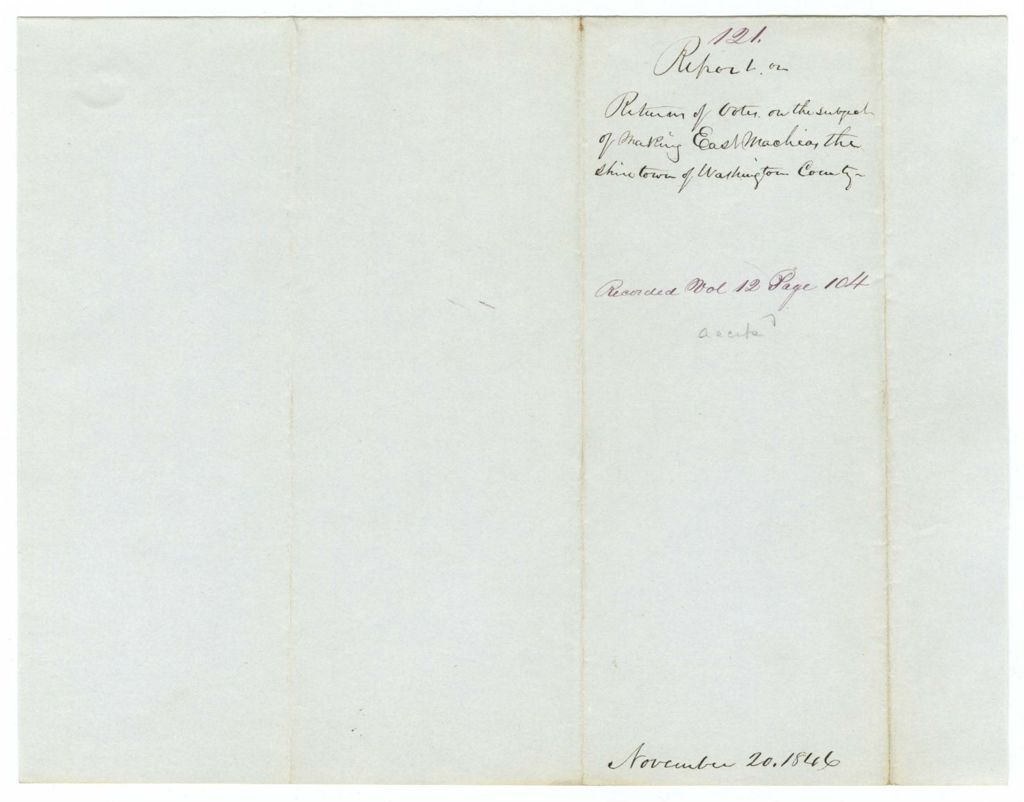 121.
Report. on
Returns of Votes. on the subject
of making East Machias the
Shire town of Washington County
Recorded Vol 12 Page 104
November 20. 1846